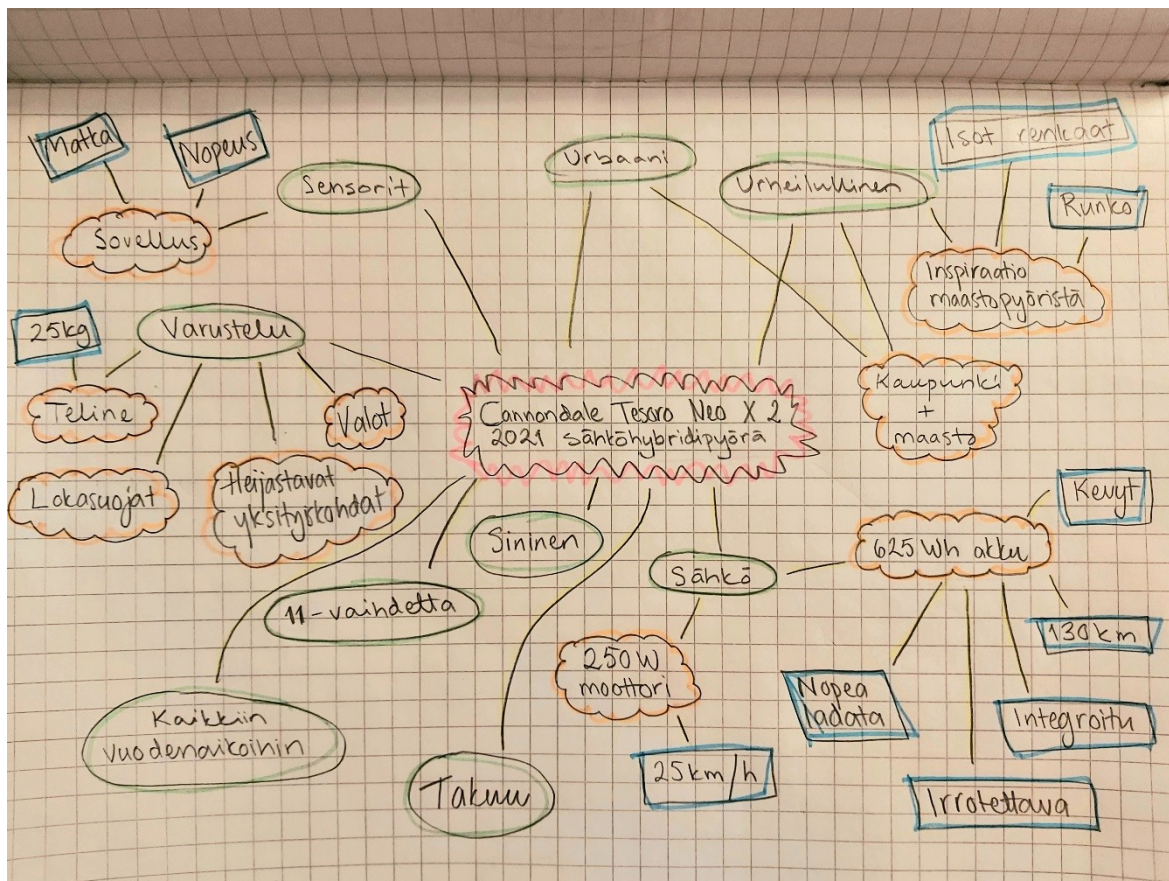 Matka
Nopeus
Sensorit
Sovellus
Urbaani
Urheilullinen
Isot renkaat
Runko
Inspiraatio
maastopyöristä
25kg
Varustelu
Teline
Valot
Lokasuojat
Heijastavat
yksityiskohdat
Cannondale Tesoro Neo X 2
2021 sähköhybridipyörä
Kaupunki
+
maasto
Sininen
11-vaihdetta
Kaikkiin
vuodenaikoihin
Takuu
Sähkö
250W
moottori
25km/h
625Wh akku
Kevyt
130km
Nopea
ladata
Integroitu
Irrotettava